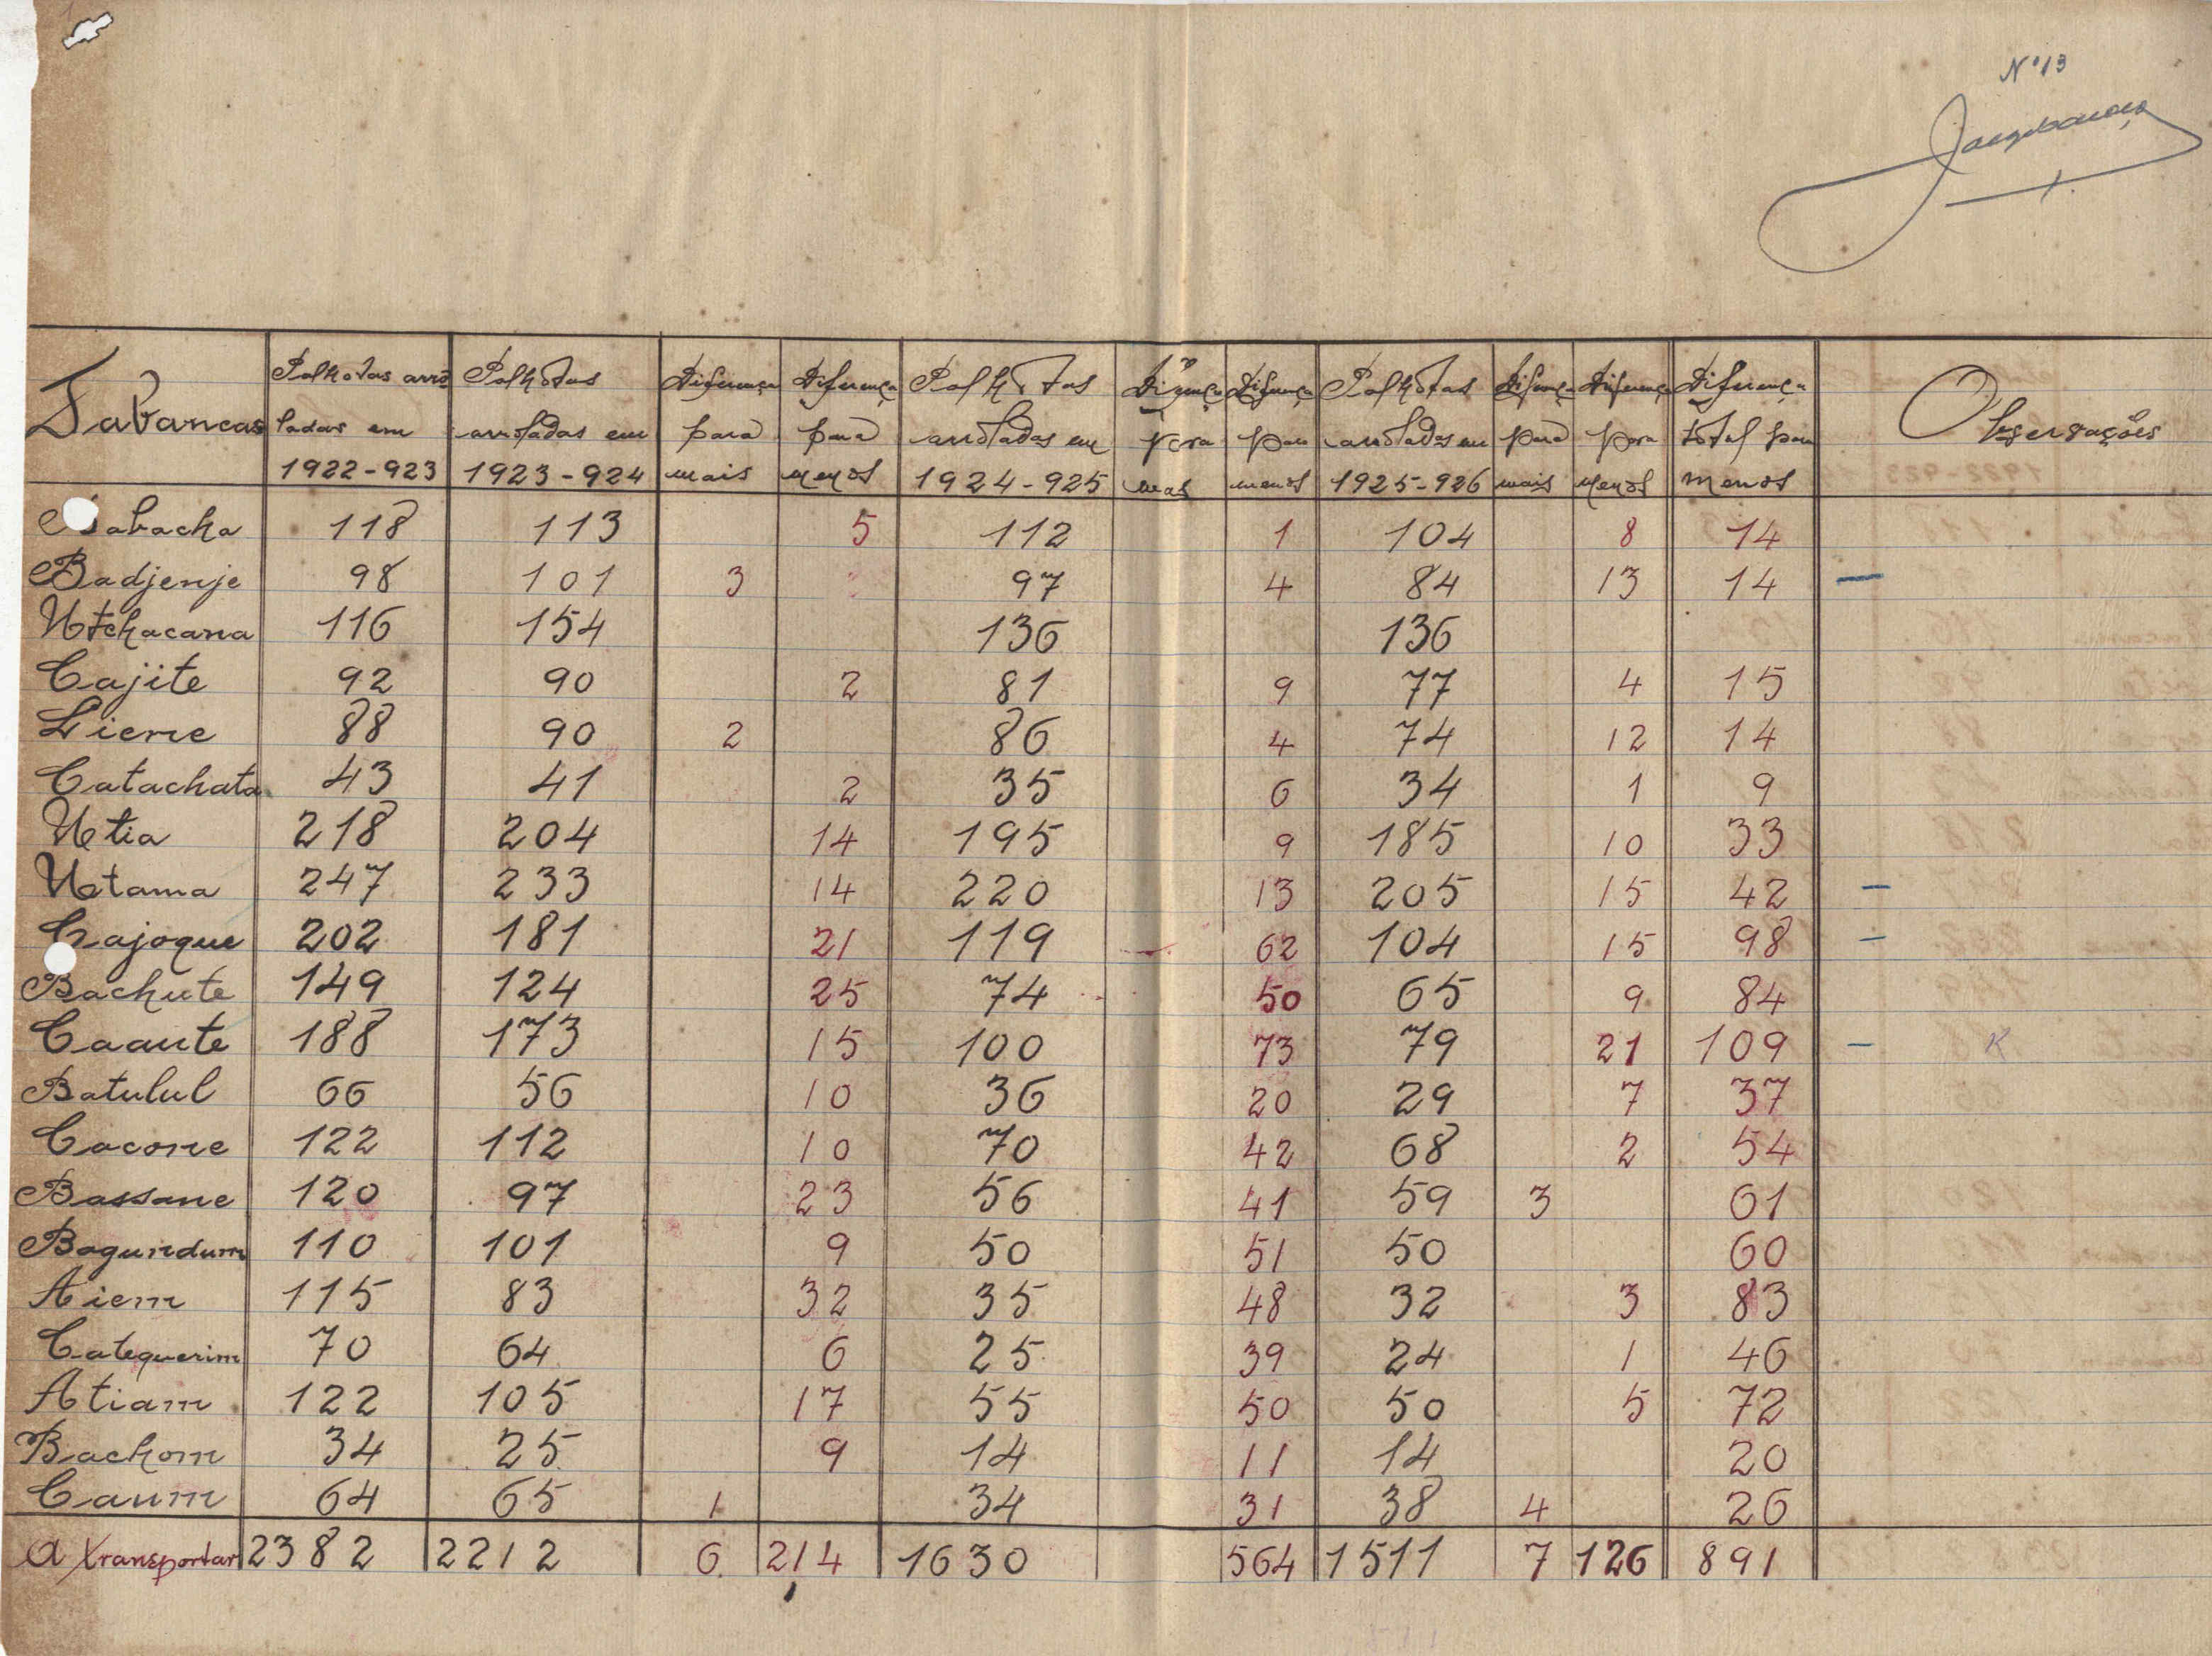 Nº 13
Tabancas | Palhotas arroladas em 1922-923 | Palhotas arroladas em 1923-924 | Diferença para mais | Diferença para menos | Palhotas arroladas em 1924-925 | Diferença para mais | Diferença para menos | Palhotas arroladas em 1925-926 | Diferença para mais | Diferença para menos | Diferença total para menos | Observações
Babacha 118 113 5 112 1 104 8 14
Badjenje 98 101 3 97 4 84 13 14 —
Utchacana 116 154 136 136
Cajite 92 90 2 81 9 77 4 15
Liene 88 90 2 86 4 74 12 14
Catachata 43 41 2 35 6 34 1 9
Utia 218 204 14 195 9 185 10 33
Utama 247 233 14 220 13 205 15 42 —
Cajoque 202 181 21 119 62 104 15 98 —
Bachute 149 124 25 74 50 65 9 84
Caaute 188 173 15 100 73 79 21 109 —
Batulul 66 56 10 36 20 29 7 37
Cacone 122 112 10 70 42 68 2 54
Bassane 120 97 23 56 41 59 3 61
Bagundum 110 101 9 50 51 50 60
Aiem 115 83 32 35 48 32 3 83
Catequerim 70 64 6 25 39 24 1 46
Atiam 122 105 17 55 50 50 5 72
Bachom 34 25 9 14 11 14 20
Caum 64 65 1 34 31 38 4 26
A transportar 2382 2212 6 214 1630 564 1511 7 126 891